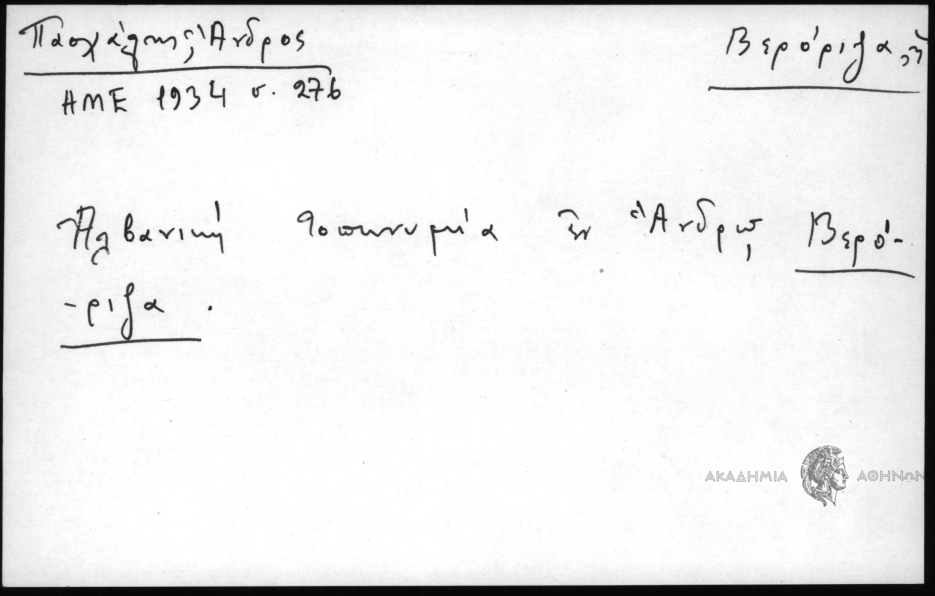 Πασχάλης, Ἄνδρος
Βερόριζα, ἡ
ΗΜΕ 1934 σ. 276
Ἀλβανική τοπωνυμία ἐν Ἄνδρῳ, Βερό-
-ριζα.
ΑΚΑΔΗΜΙΑ ΑΘΗΝΩΝ